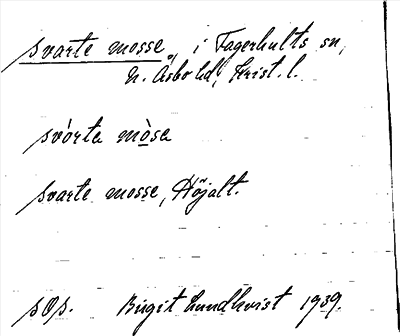 svarte mosse, i Fagerhults sn,
N. Åsbo hd, Krist. l.
svòrta mòsa
svarte mosse, Höjalt.
sOs. Birgit Lundkvist 1939.